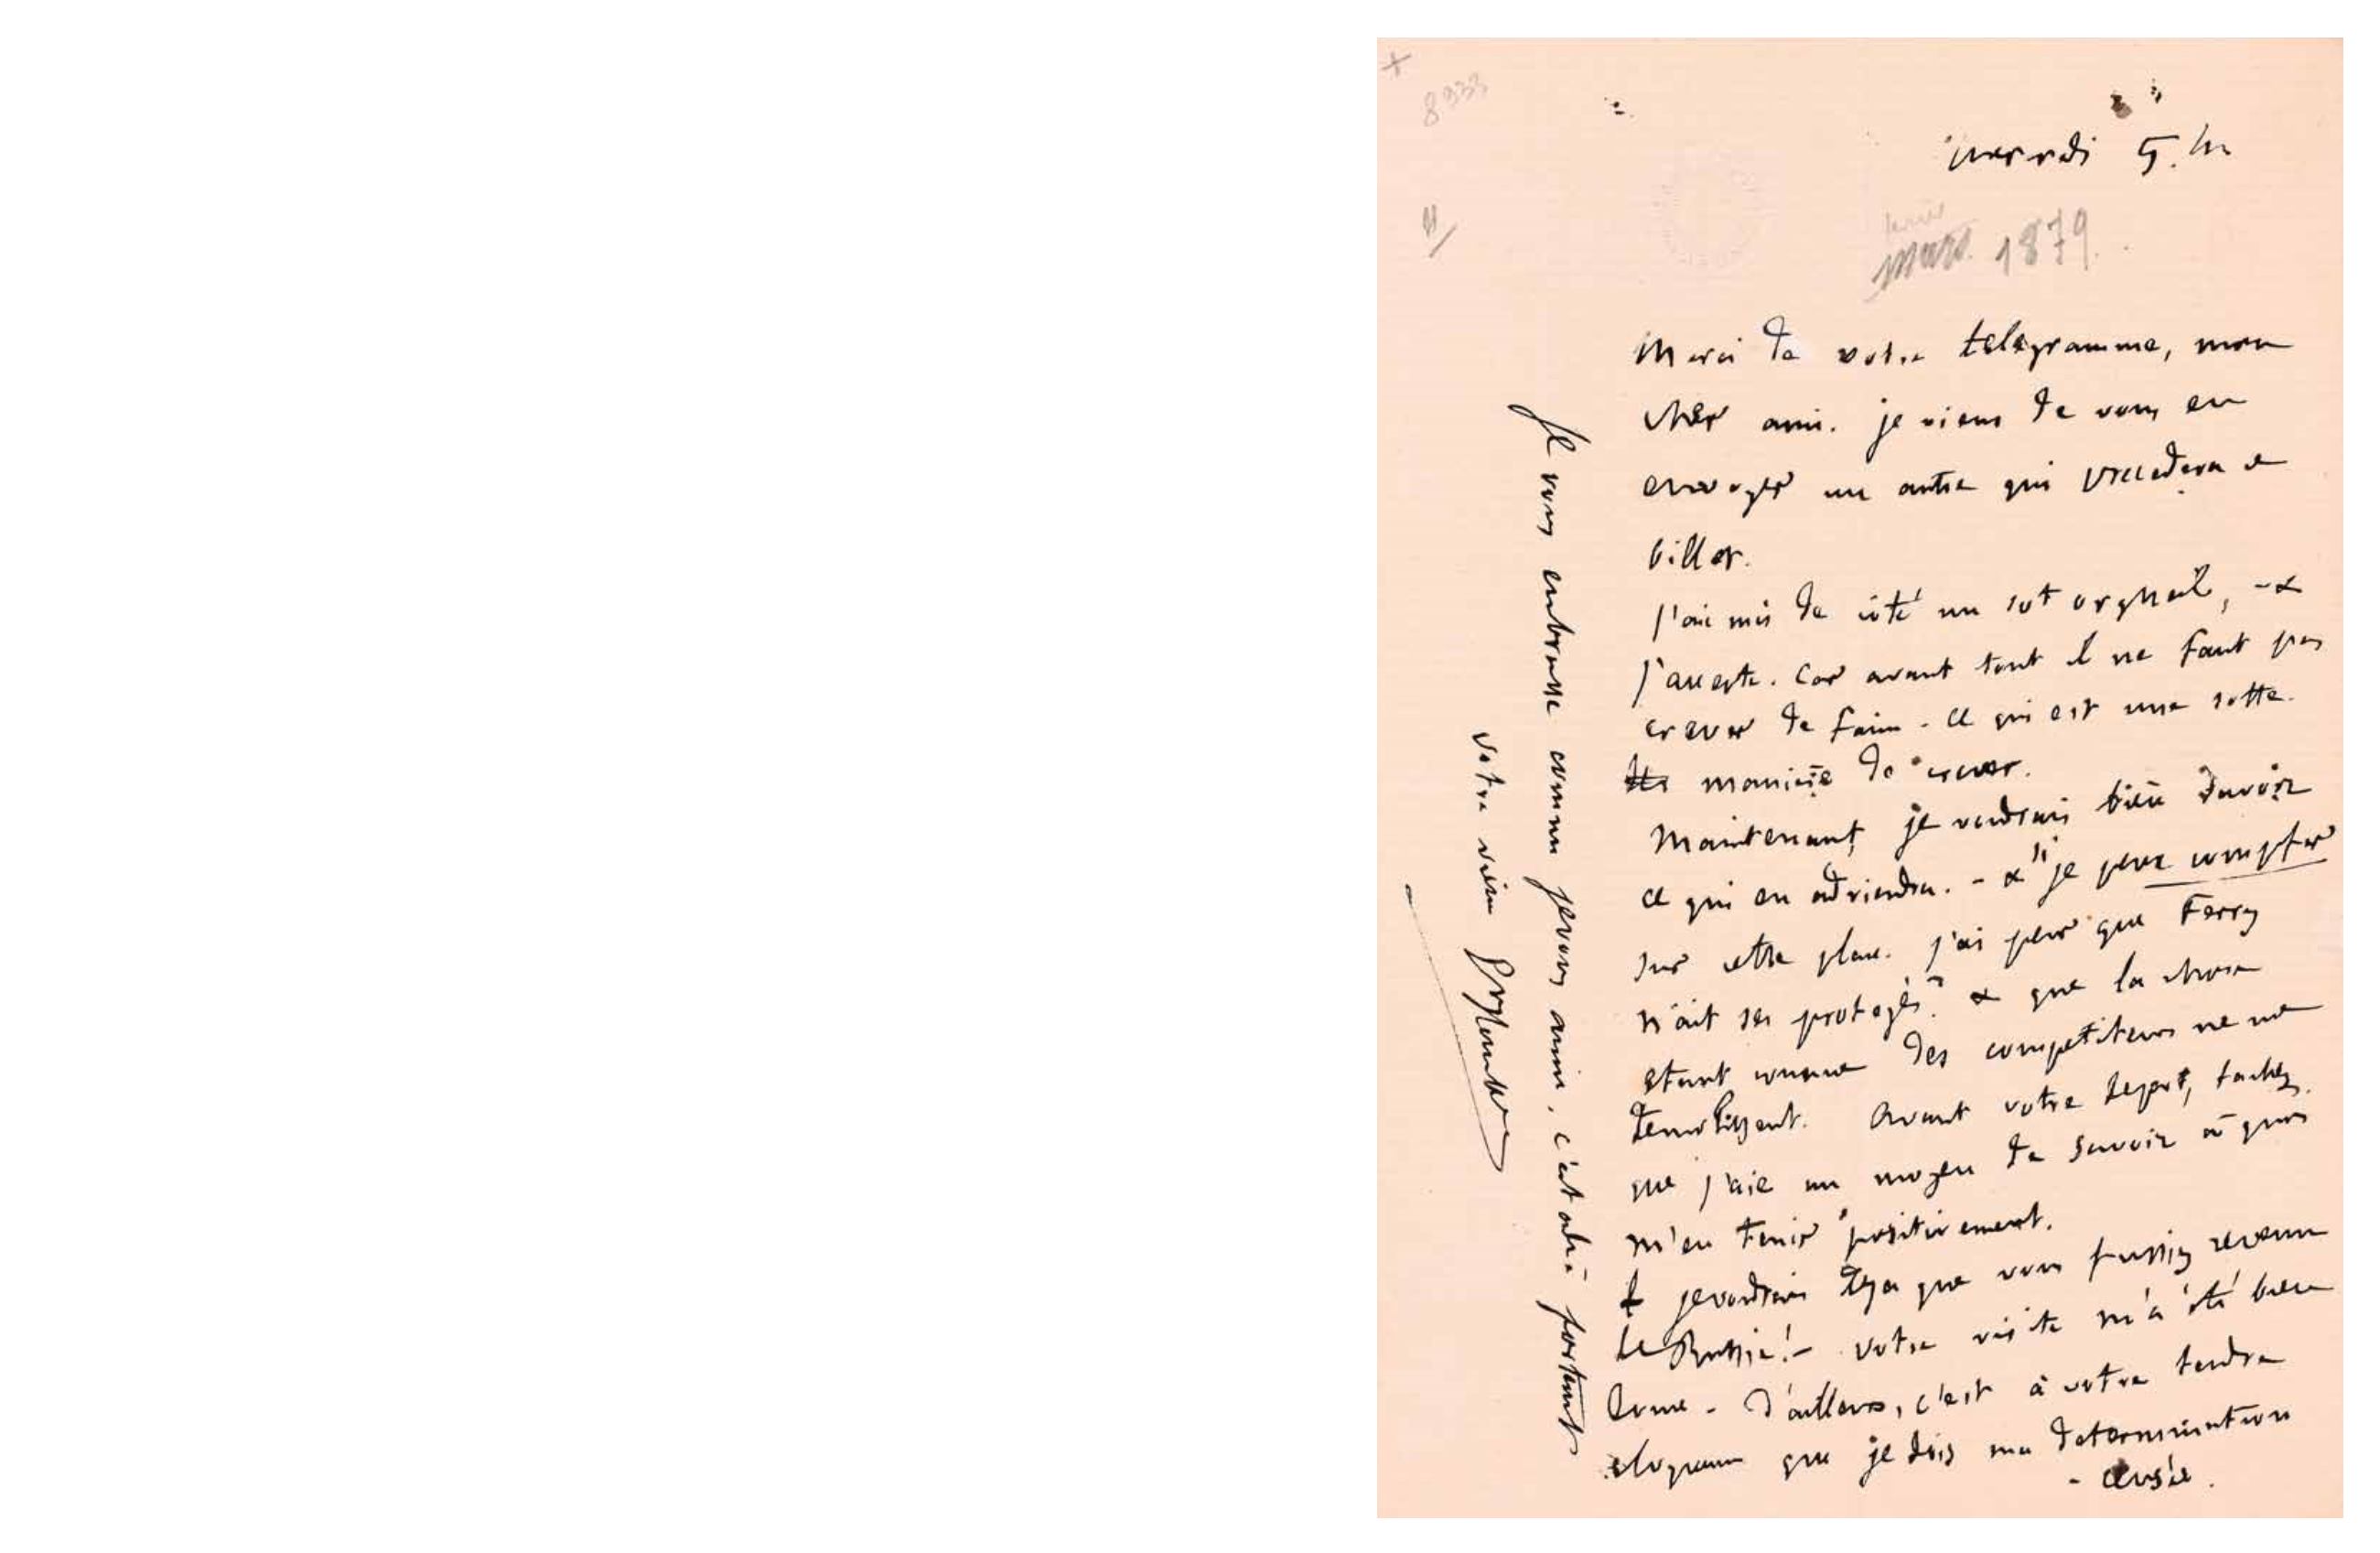 8933
mercredi 5. h
mars. 1879.
Merci de votre telegramme, mon
cher ami. je viens de vous en
envoyer un autre qui précédera ce
billet.
J'ai mis de côté un sot orgueil, - &
j'accepte. Car avant tout il ne faut pas
crever de faim - ce qui est une sotte
manière de crever.
Maintenant, je voudrais bien savoir
ce qui en adviendra. - & si je peux compter
sur cette place. j'ai peur que Ferry
n'ait ses protegés? & que la chose
etant connue des competiteurs ne me
demolissent. Avant votre depart, tachez
que j'aie un moyen de savoir à quoi
m'en tenir positivement.
je voudrais deja que vous fussiez revenu
de Russie! - Votre visite m'a été bien
bonne - D'ailleurs, c'est à votre tendre
eloquence que je dois ma determination
- censée.
Je vous embrasse comme je vous aime, c'est a dire fortement
votre vieux GFlaubert